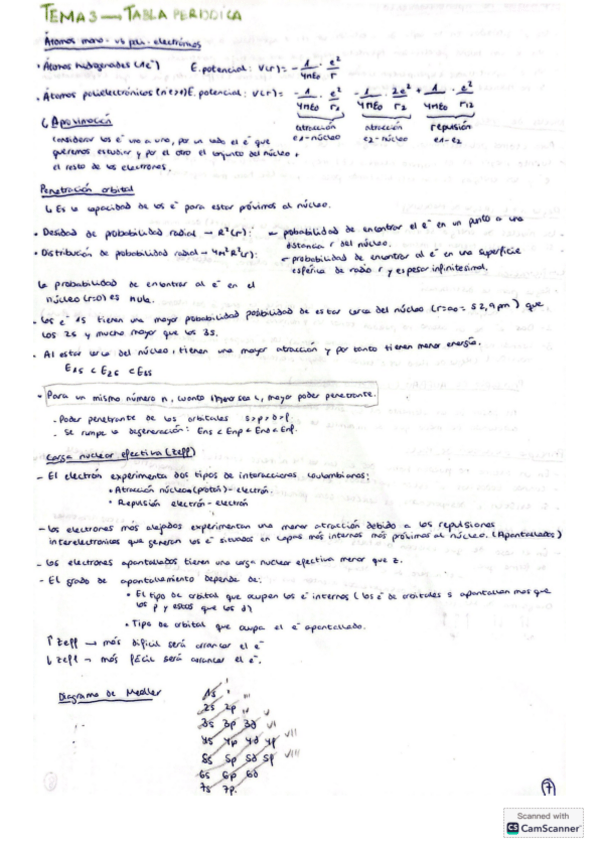 TEMA 3 — TABLA PERIODICA
Átomos mono- vs poli-electrónicos
• Átomos hidrogenoides (1e⁻) E.potencial: V(r)= - 1/4πε₀ · e²/r
• Átomos polielectrónicos (nºe>1) E.potencial: V(r)= - 1/4πε₀ · e²/r₁ - 1/4πε₀ · 2e²/r₂ + 1/4πε₀ · e²/r₁₂
atracción e1-núcleo atracción e2-núcleo repulsión e1-e2
↳ Aproximación
Considerar los e⁻ uno a uno, por un lado el e⁻ que
queremos estudiar y por el otro el conjunto del núcleo +
el resto de los electrones.
Penetración orbital
↳ Es la capacidad de los e⁻ para estar próximos al núcleo.
• Desidad de probabilidad radial → R²(r): probabilidad de encontrar el e⁻ en un punto a una
distancia r del núcleo.
• Distribución de probabilidad radial → 4πr²R²(r): probabilidad de encontrar al e⁻ en una superficie
esférica de radio r y espesor infinitesimal.
La probabilidad de encontrar al e⁻ en el
núcleo (r=0) es nula.
• Los e⁻ 1s tienen una mayor probabilidad posibilidad de estar cerca del núcleo (r=a₀= 52,9pm) que
los 2s y mucho mayor que los 3s.
• Al estar cerca del núcleo, tienen una mayor atracción y por tanto tienen menor energía.
E1s < E2s < E3s
• Para un mismo número n, cuanto menor sea l, mayor poder penetrante.
- Poder penetrante de los orbitales s>p>d>f
- Se rompe la degeneración: Ens < Enp < End < Enf.
Carga nuclear efectiva (Zeff)
- El electrón experimenta dos tipos de interacciones coulombianas:
• Atracción núcleo (protón) - electrón.
• Repulsión electrón - electrón
- Los electrones más alejados experimentan una menor atracción debido a las repulsiones
interelectrónicas que generan los e⁻ situados en capas más internas más próximas al núcleo. (Apantallados)
- Los electrones apantallados tienen una carga nuclear efectiva menor que Z.
- El grado de apantallamiento depende de:
• El tipo de orbital que ocupen los e⁻ internos (los e⁻ de orbitales s apantallan mas que
los p y estos que los d)
• Tipo de orbital que ocupa el e⁻ apantallado.
↑ Zeff → más dificil será arrancar el e⁻
↓ Zeff → más fácil será arrancar el e⁻.
Diagrama de Moeller
1s
2s 2p
3s 3p 3d VI
4s 4p 4d 4f VII
5s 5p 5d 5f VIII
6s 6p 6d
7s 7p.
(7)
Scanned with
CS CamScanner